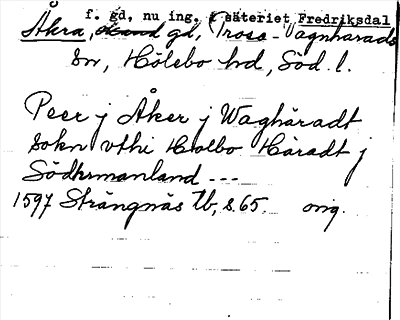 f. gd, nu ing. i säteriet Fredriksdal
Åkra, gd, Trosa-Vagnhärads
sn, Hölebo hd, Söd. l.
Peer j Åker j Waghäradt
sokn vthi Holbo Häradt j
Södhrmanland ---
1597 Strängnäs tb, s. 65. orig.